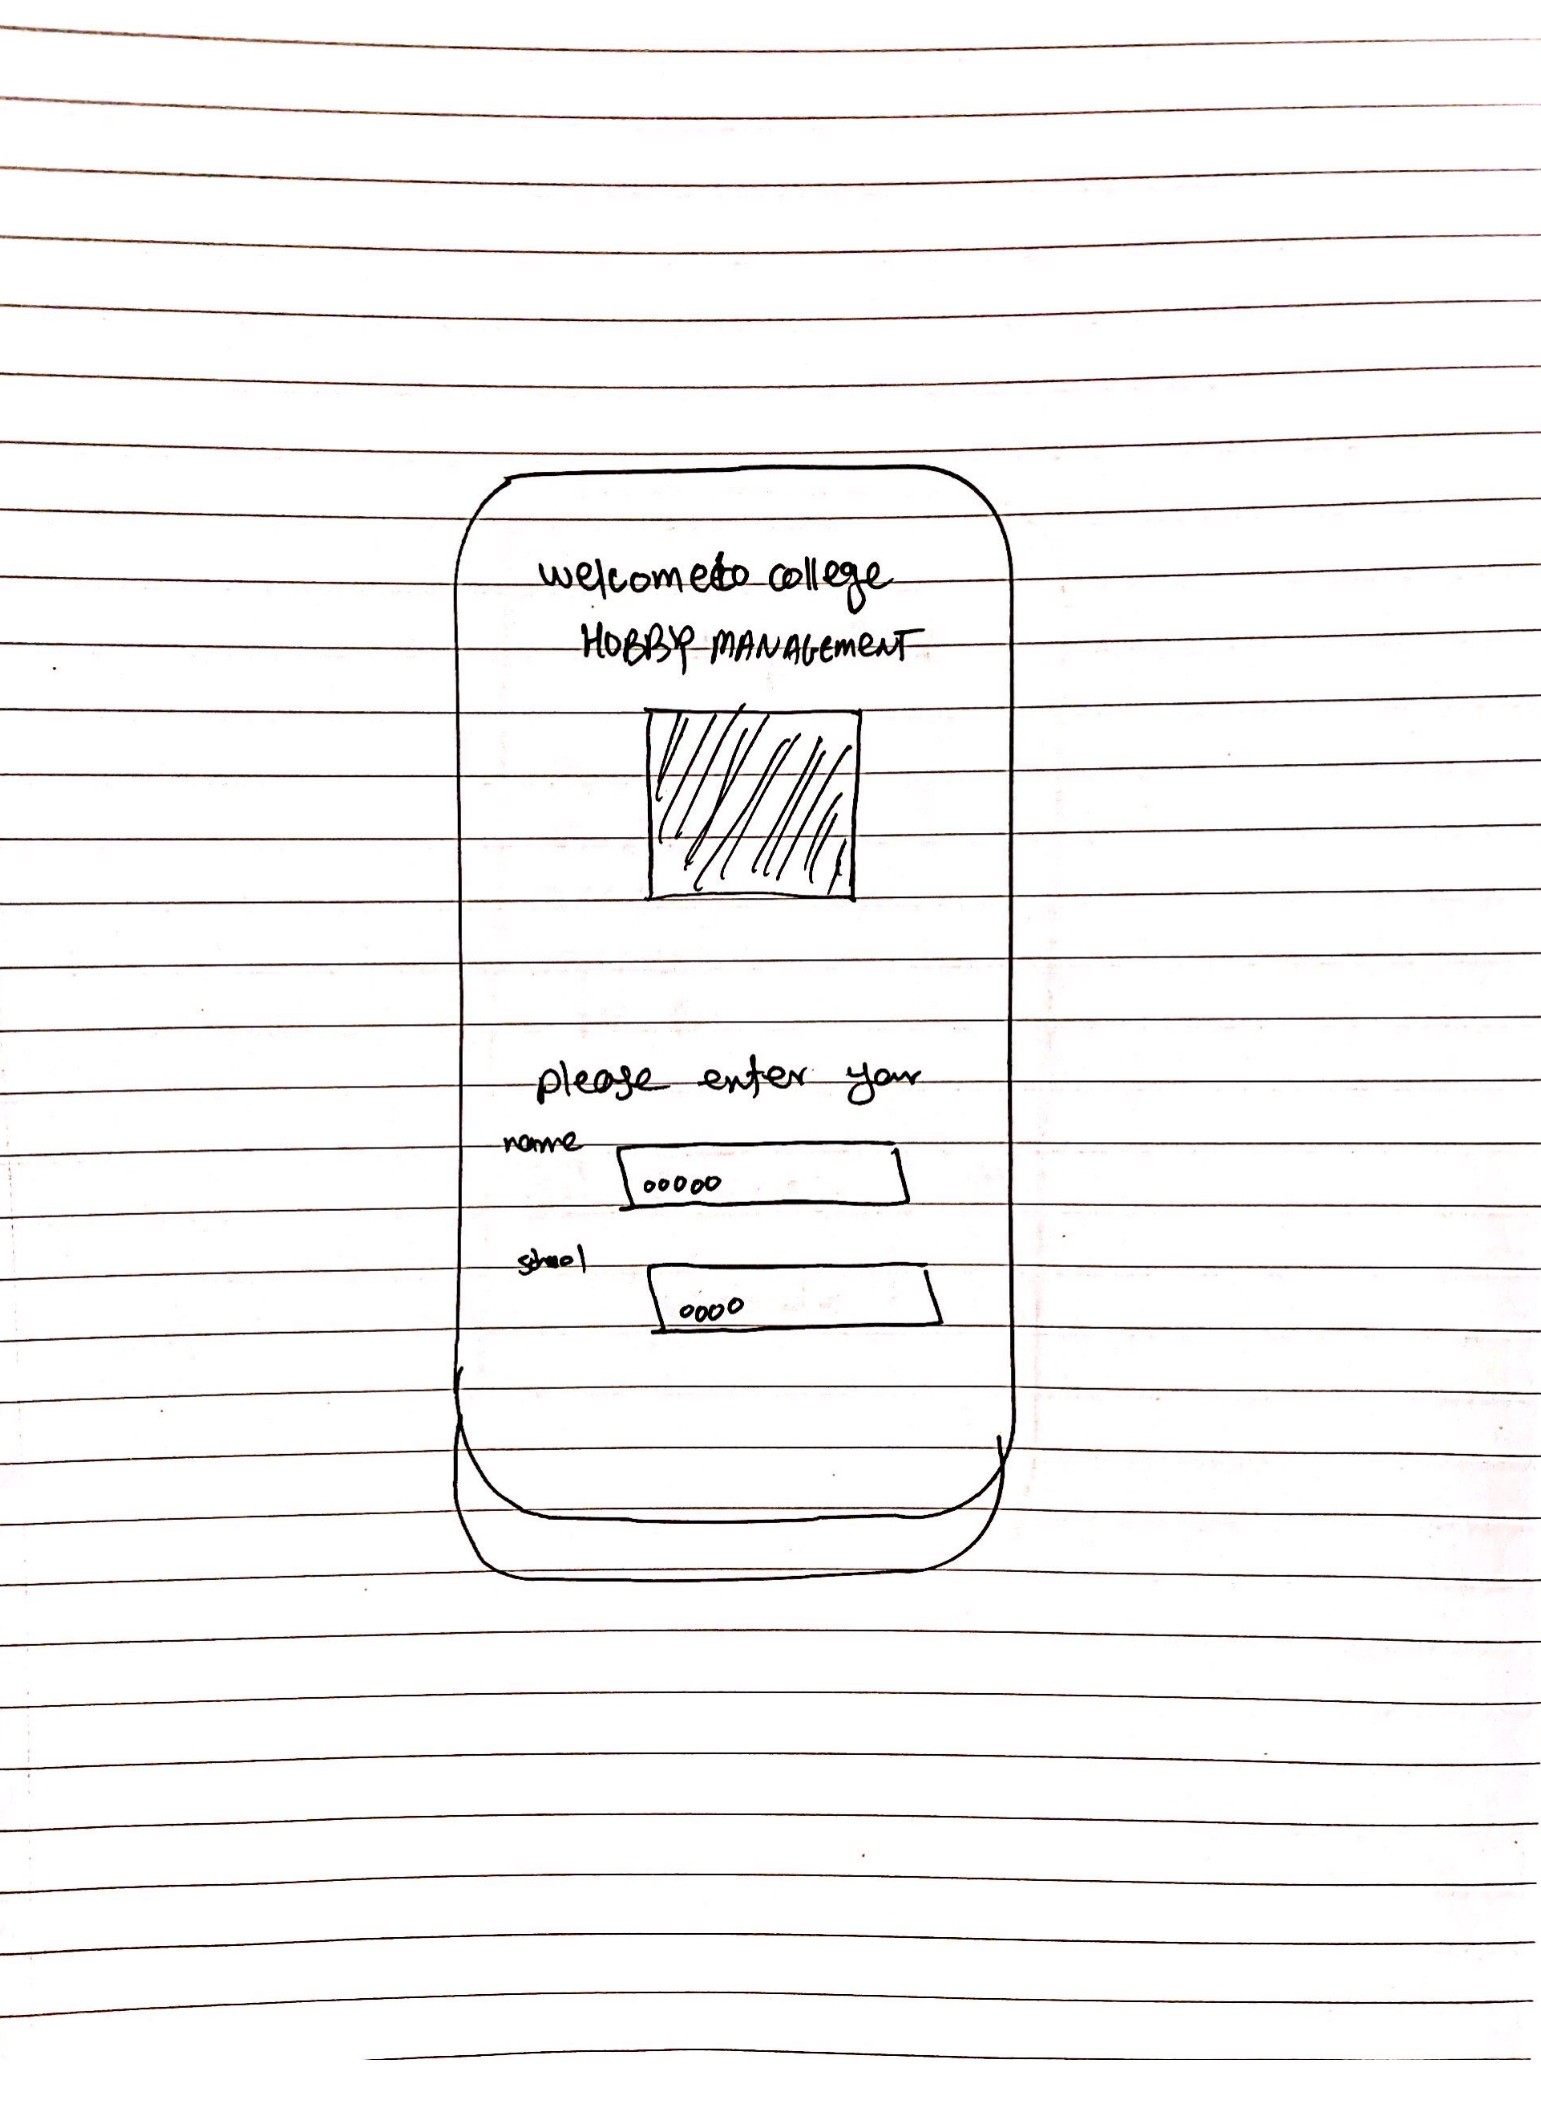 welcome to college
HOBBY MANAGEMENT
please enter your
name
ooooo
school
oooo